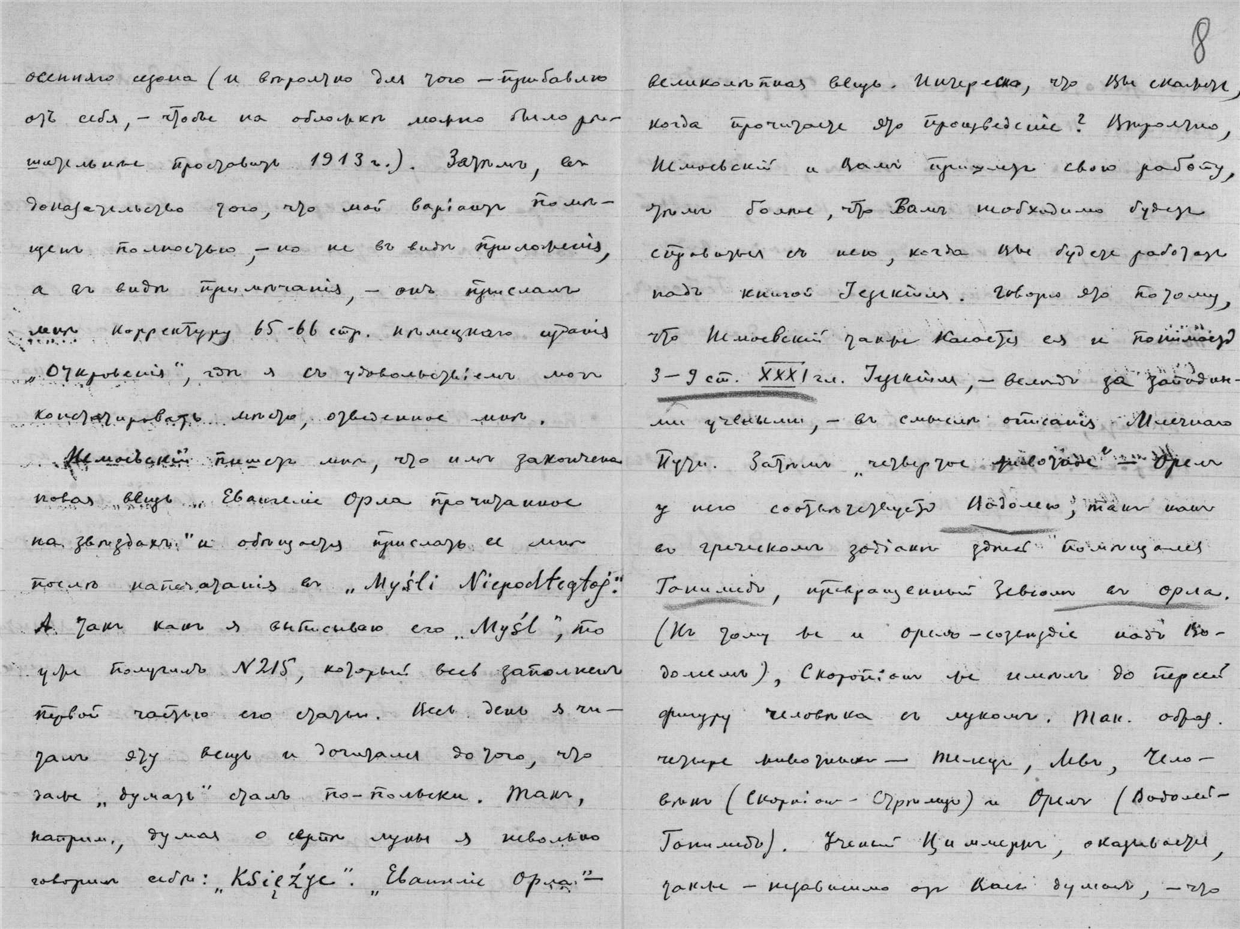 осенняго сезона (и вѣроятно для того — прибавлю
отъ себя, — чтобы на обложкѣ можно было рѣ-
шительнѣе проставить 1913 г.). Затѣмъ, въ
доказательство того, что мой варіантъ помѣ-
щенъ полностью, — но не въ видѣ приложенія,
а въ видѣ примѣчанія, — онъ прислалъ
мнѣ корректуру 65-66 стр. нѣмецкаго изданія
„Откровенія", гдѣ я съ удовольствіемъ могъ
констатировать мѣсто, отведенное мнѣ.
Немоевскій пишетъ мнѣ, что имъ закончена
новая вещь „Евангеліе Орла прочитанное
на звѣздахъ" и обѣщается прислать ее мнѣ
послѣ напечатанія въ „Myśli Niepodległej".
А такъ какъ я выписываю его „Myśl", то
уже получилъ N 215, который весь заполненъ
первой частью его статьи. Весь день я чи-
талъ эту вещь и дочитался до того, что
даже „думать" сталъ по-польски. Такъ,
наприм., думая о свѣтѣ луны я невольно
говорилъ себѣ: „Księżyc". „Евангеліе Орла" —
8
великолѣпная вещь. Интересно, что Вы скажете,
когда прочитаете это произведеніе? Вѣроятно,
Немоевскій и Вамъ пришлетъ свою работу,
тѣмъ болѣе, что Вамъ необходимо будетъ
справиться съ нею, когда Вы будете работать
надъ книгой Іезекіиля. Говорю это потому,
что Немоевскій также касается ея и понимаетъ
3-9 ст. XXXI гл. Іезекіиля, — вслѣдъ за западны-
ми учеными, — въ смыслѣ описанія Млечнаго
Пути. Затѣмъ „четвертое животное" — Орелъ
у него соотвѣтствуетъ Водолею, такъ какъ
въ греческомъ зодіакѣ здѣсь помѣщался
Ганимедъ, превращенный Зевсомъ въ орла.
(Къ тому же и орелъ-созвѣздіе надъ Во-
долеемъ), Скорпіонъ же имѣлъ до персей
фигуру человѣка съ лукомъ. Так. образ.
четыре животныхъ — Телецъ, Левъ, Чело-
вѣкъ (Скорпіон-Стрѣлецъ) и Орелъ (Водолей-
Ганимедъ). Ученый Циммернъ, оказывается,
также — независимо отъ Васъ думалъ, — что